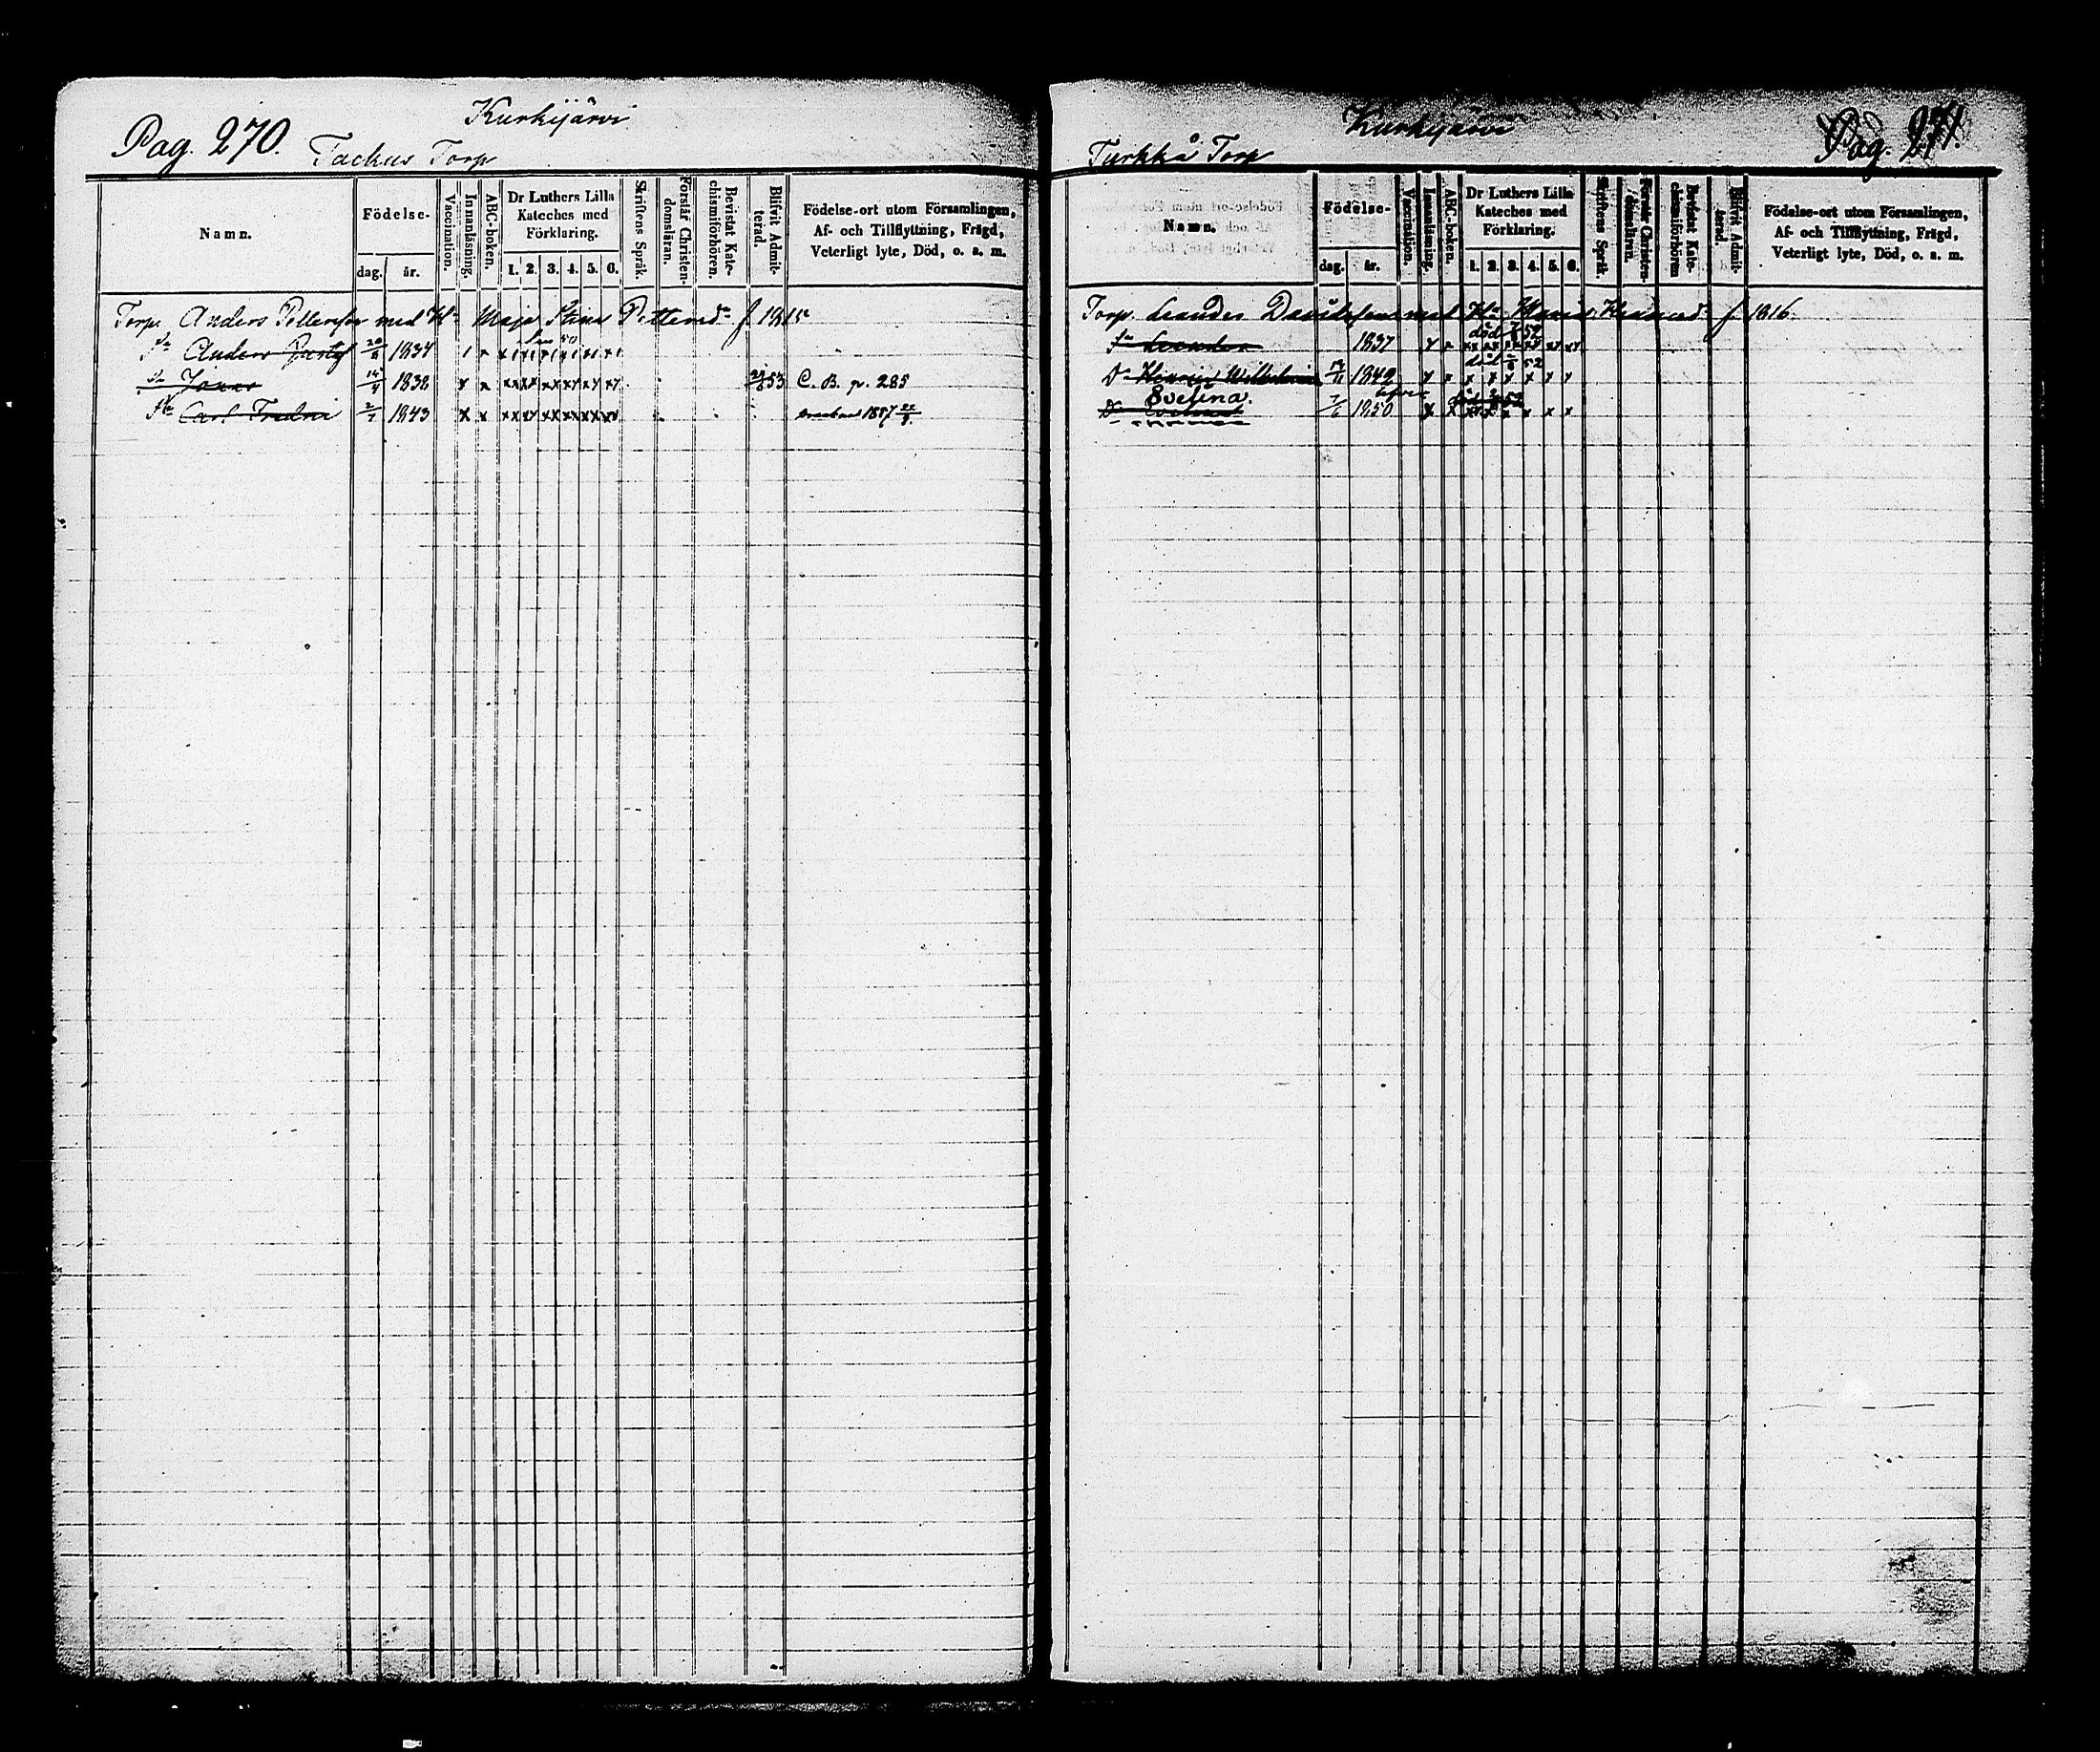 Pag. 270.
Kurkijärvi
Tackus Torp
Namn.
Födelse-
dag. år.
Vaccination.
Innanläsning.
ABC-boken.
Dr Luthers Lilla
Kateches med
Förklaring.
1. 2. 3. 4. 5. 6.
Skriftens Språk.
Förstår Christen-
domsläran.
Bevistat Kate-
chismiförhören.
Blifvit Admit-
terad.
Födelse-ort utom Församlingen,
Af- och Tillflyttning, Frägd,
Veterligt lyte, Död, o. s. m.
Torp. Anders Pettersson med H. Maja Stina Pettersd. f. 1815
Sn Anders Gustaf 20/8 1834
Sn Jonas 14/4 1838 53 C. B. p. 285
Sn Carl Fredric 2/7 1843 1857
Kurkijärvi
Pag. 271.
Turkkå Torp
Namn.
Födelse-
dag. år.
Vaccination.
Innanläsning.
ABC-boken.
Dr Luthers Lilla
Kateches med
Förklaring.
1. 2. 3. 4. 5. 6.
Skriftens Språk.
Förstår Christen-
domsläran.
Bevistat Kate-
chismiförhören
Blifvit Admit-
terad.
Födelse-ort utom Församlingen,
Af- och Tillflyttning, Frägd,
Veterligt lyte, Död, o. s. m.
Torp. Leander Davidsson med Hu f 1816.
Sn Leander 1837 död 52
Dr Wilhelmina 1842 död 52
Evelina.
Dr 7/6 1850 död 52